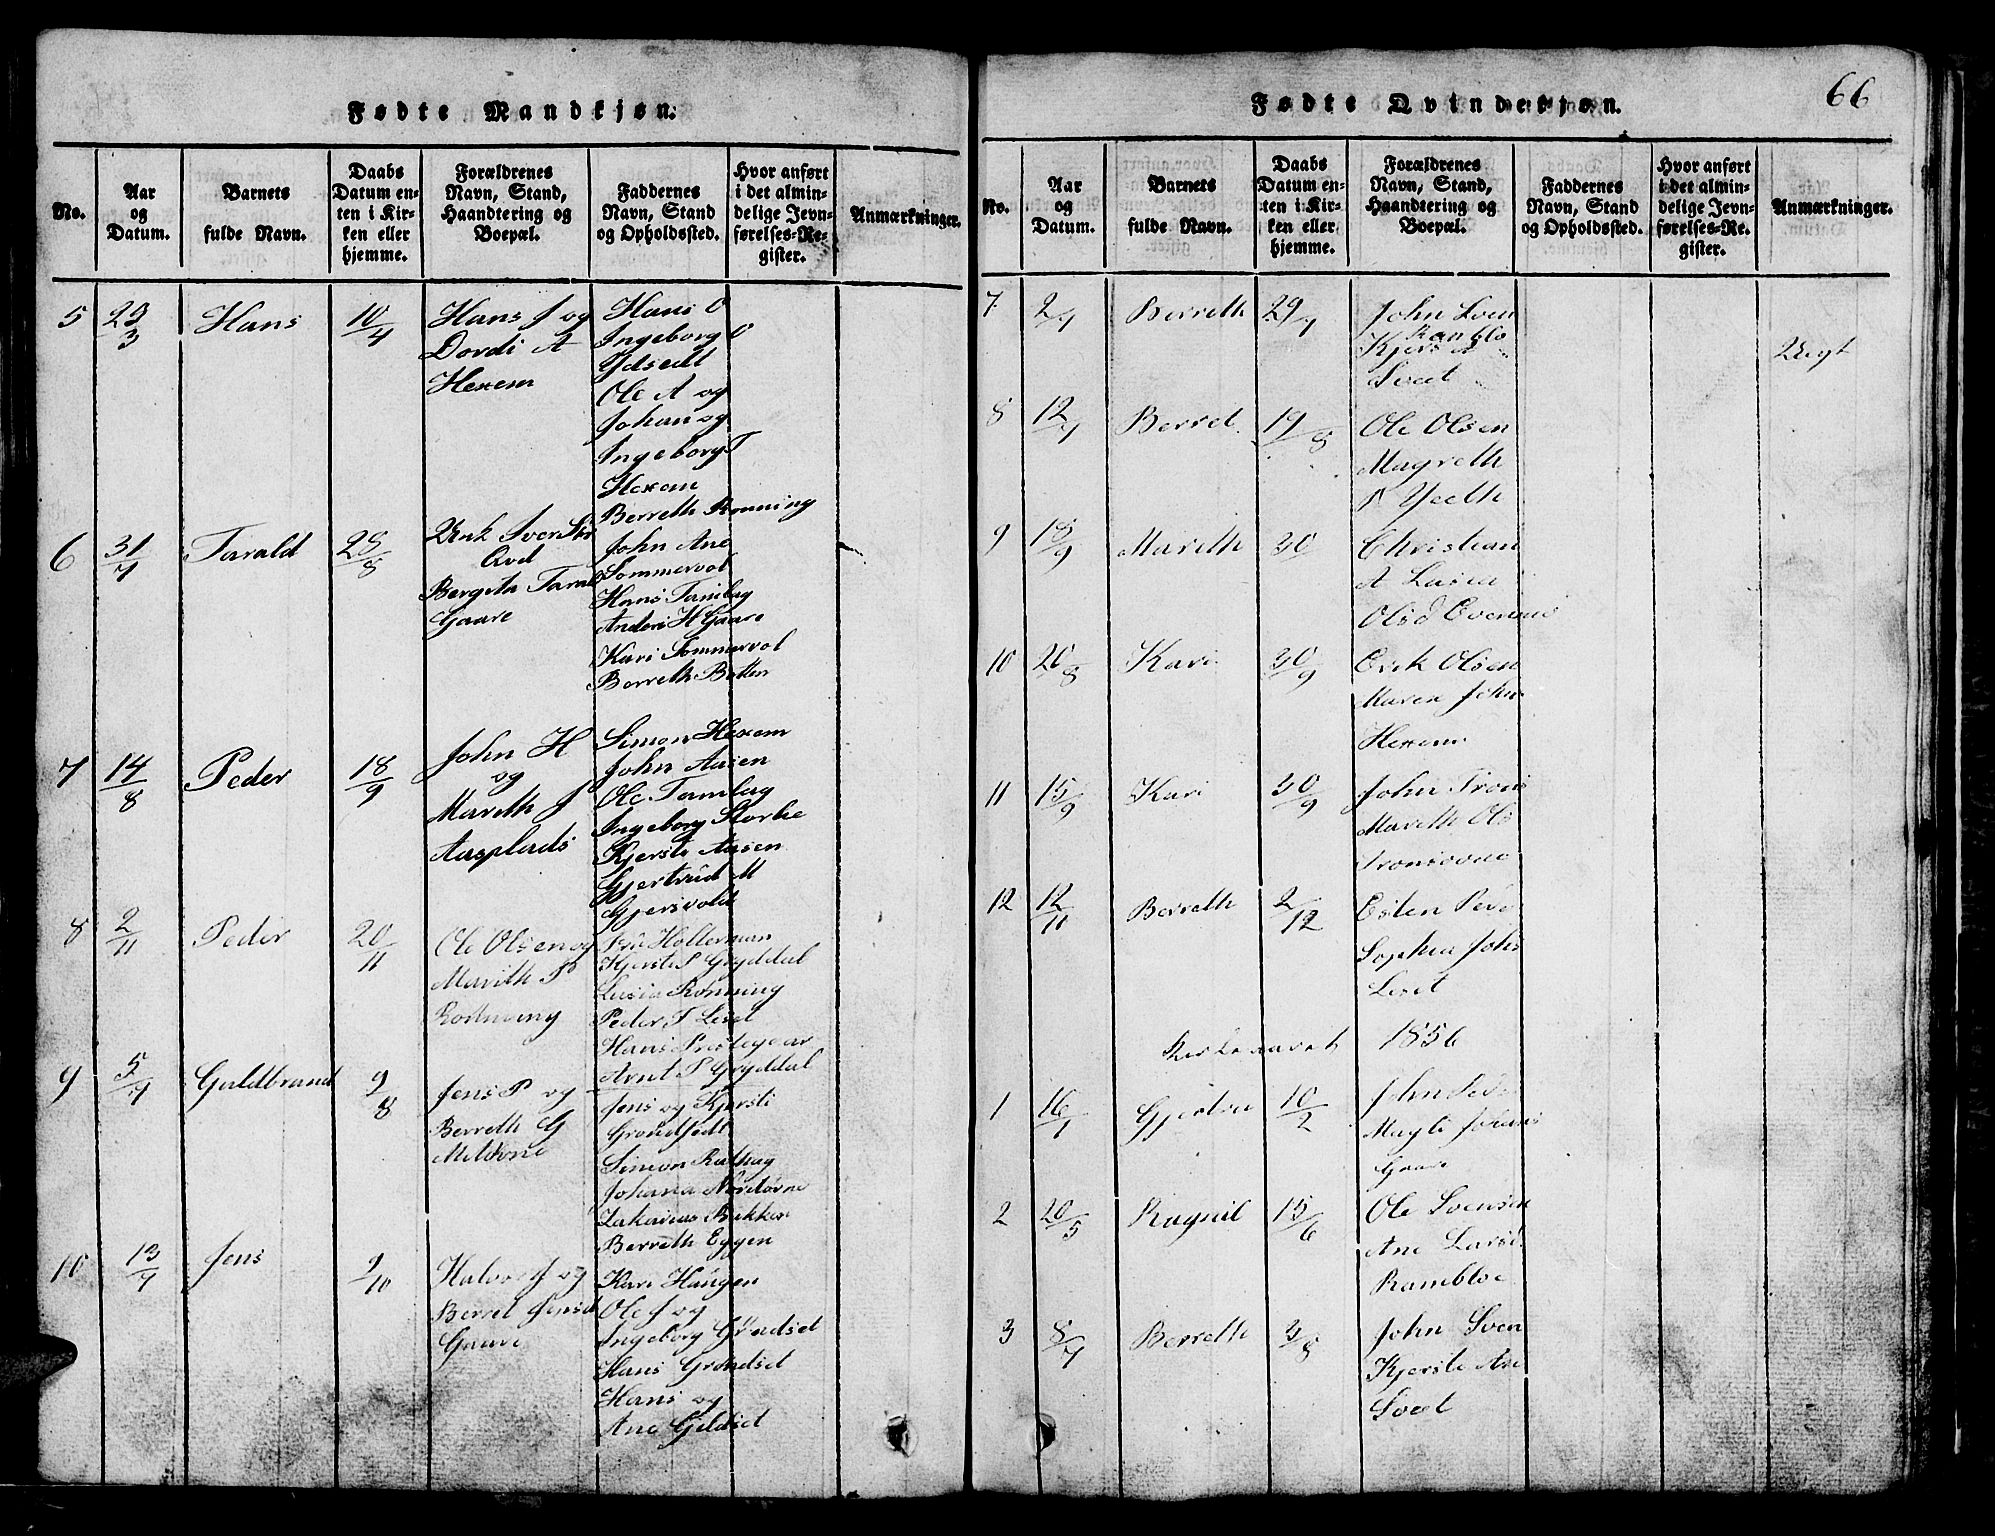 Fødte Mandkjøn.
No.
Aar
og
Datum.
Barnets
fulde Navn.
Daabs
Datum en-
ten i Kir-
ken eller
hjemme.
Forældrenes
Navn, Stand,
Haandtering og
Boepæl.
Faddernes
Navn, Stand
og Opholdssted.
Hvor anført
i det almin-
delige Jevn-
førelses-Re-
gister.
Anmærkninger.
5
29/3
Hans
10/4
Hans J og
Dordi A
Hexem
Hans O
Ingeborg O
Ydsedt
Ole A og
Johan og
Ingeborg T
Hexem
6
31/7
Tarald
28/8
Berret Gaare
Berreth Rønning
John Ane
Sommervol
Hans Tamlag
Anders H Gaare
Kari Sommervol
Berreth Batten
7
14/8
Peder
18/9
John H
og
Mareth J
Aasplads
Simon Hexem
John Aasen
Ole Tamlag
Ingeborg Storlie
Kjersti Aasen
Gjertrud M
Gjersvold
8
2/11
Peder
20/11
Ole Olsen og
Marith P
Fru Holterman
Kjerste P Gryddal
Lusia Rønning
Peder T Leset
Hans Prestegaar
Arnt P Gryddal
9
5/7
Guldbrand
9/8
Jens P og
Berreth G
Jens og Kjersti
Grondsedt
Simon Rathag
Johana Nordøvne
Zakarias Bakken
Berreth Eggen
10
13/7
Jens
9/10
Halvor J og
Berret Jensd
Gaare
Kari Haugen
Ole J og
Ingeborg Grøndset
Hans Grøndset
Hans og
Ane Gjeldset
Fødte Qvindekjøn.
66
No.
Aar
og
Datum.
Barnets
fulde Navn.
Daabs
Datum en-
ten i Kir-
ken eller
hjemme.
Forældrenes
Navn, Stand,
Haandtering og
Boepæl.
Faddernes
Navn, Stand
og Opholdssted.
Hvor anført
i det almin-
delige Jevn-
førelses-Re-
gister.
Anmærkninger.
7
2/7
Berreth
29/7
John Sven
Rambló
Kjers A
Svet
Uegt
8
12/7
Berret
19/8
Ole Olsen
Magreth
9
18/9
Mareth
30
Christian
A Lusia
Olsd Evenmo
10
20/8
Kari
30/9
Erik Olsen
Maren John
Hexem
11
15/9
Kari
30/9
John Trons
Mareth Ols
Tronsovne
12
12/11
Berreth
2/12
Esten Peds
Sophia Johs
Leset
Kirkeaaret 1856
1
16/1
10/2
John Peds
Magli Johans
Gaare
2
20/5
Ragnil
15/6
Ole Svensen
Ane Larsd
Rambloe
3
8/7
Berreth
3/8
John Sven
Kjerste Ane
Svet